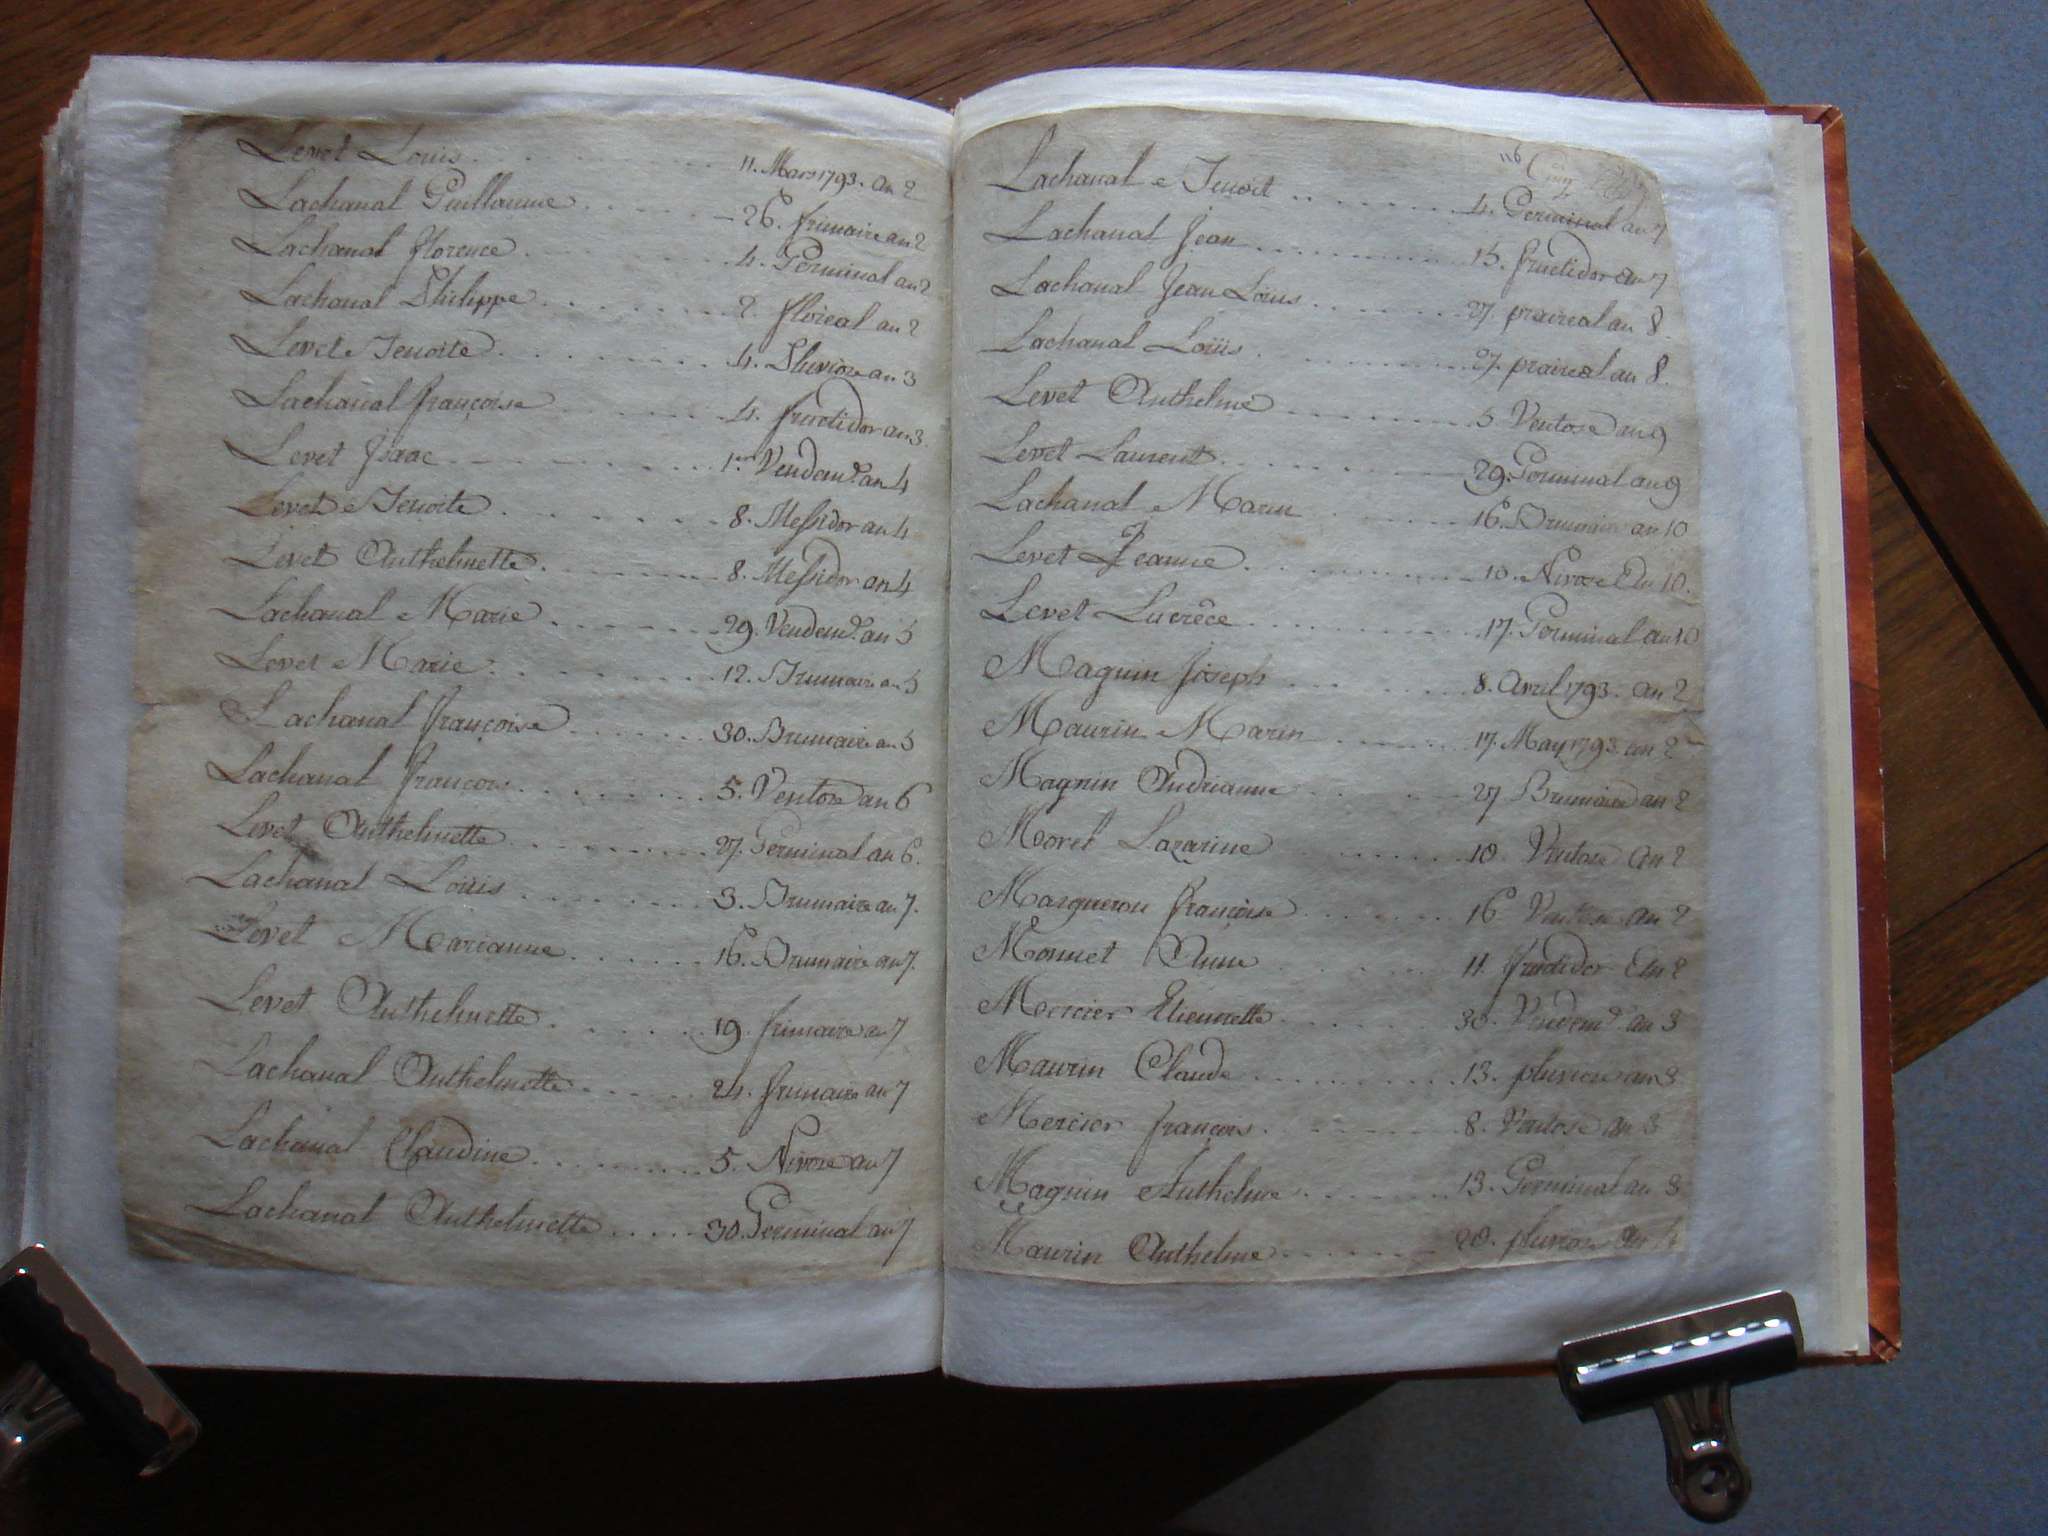 Levet Louis 11. Mars 1793. an 2
Lachanal Guillaume 26. frimaire an 2
Lachanal florence 4. Germinal an 2
Lachanal Philippe 2. floreal an 2
Levet Benoite 4. Pluviose an 3
Lachanal françoise 4. fructidor an 3
Levet Isaac 1er Vendem.re an 4
Levet Benoite 8. Messidor an 4
Levet Anthelmette 8. Messidor an 4
Lachanal Marie 29. Vendem.re an 5
Levet Marie 12. Brumaire an 5
Lachanal françoise 30. Brumaire an 5
Lachanal françois 5. Ventose an 6
Levet Anthelmette 27. Germinal an 6.
Lachanal Louis 3. Brumaire an 7.
Levet Marianne 16. Brumaire an 7.
Levet Anthelmette 19. frimaire an 7
Lachanal Anthelmette 24. frimaire an 7
Lachanal Claudine 5. Nivose an 7
Lachanal Anthelmette 30. Germinal an 7
116 Cinq
Lachanal Benoit 4. Germinal an 7
Lachanal Jean 15. fructidor an 7
Lachanal Jean Louis 27. praireal an 8.
Lachanal Louis 27. praireal an 8.
Levet Anthelme 5 Ventose an 9
Levet Laurent 29. Germinal an 9
Lachanal Marin 16. Brumaire an 10
Levet Jeanne 10. Nivose An 10.
Levet Lucrêce 17. Germinal an 10
Magnin Joseph 8. Avril 1793. an 2
Maurin Marin 17. May 1793. an 2
Magnin Andrianne 27 Brumaire an 2
Moret Lazarine 10. Ventose An 2
Masqueron françoise 16 Ventose an 2
Monnet Anne 11. fructidor An 2
Mercier Etiennette 30. Vendem.re an 3
Maurin Claude 13. pluviose an 3
Mercier françois 8. Ventose an 3
Magnin Anthelme 13. Germinal an 3
Maurin Anthelme 20. pluviose an 4